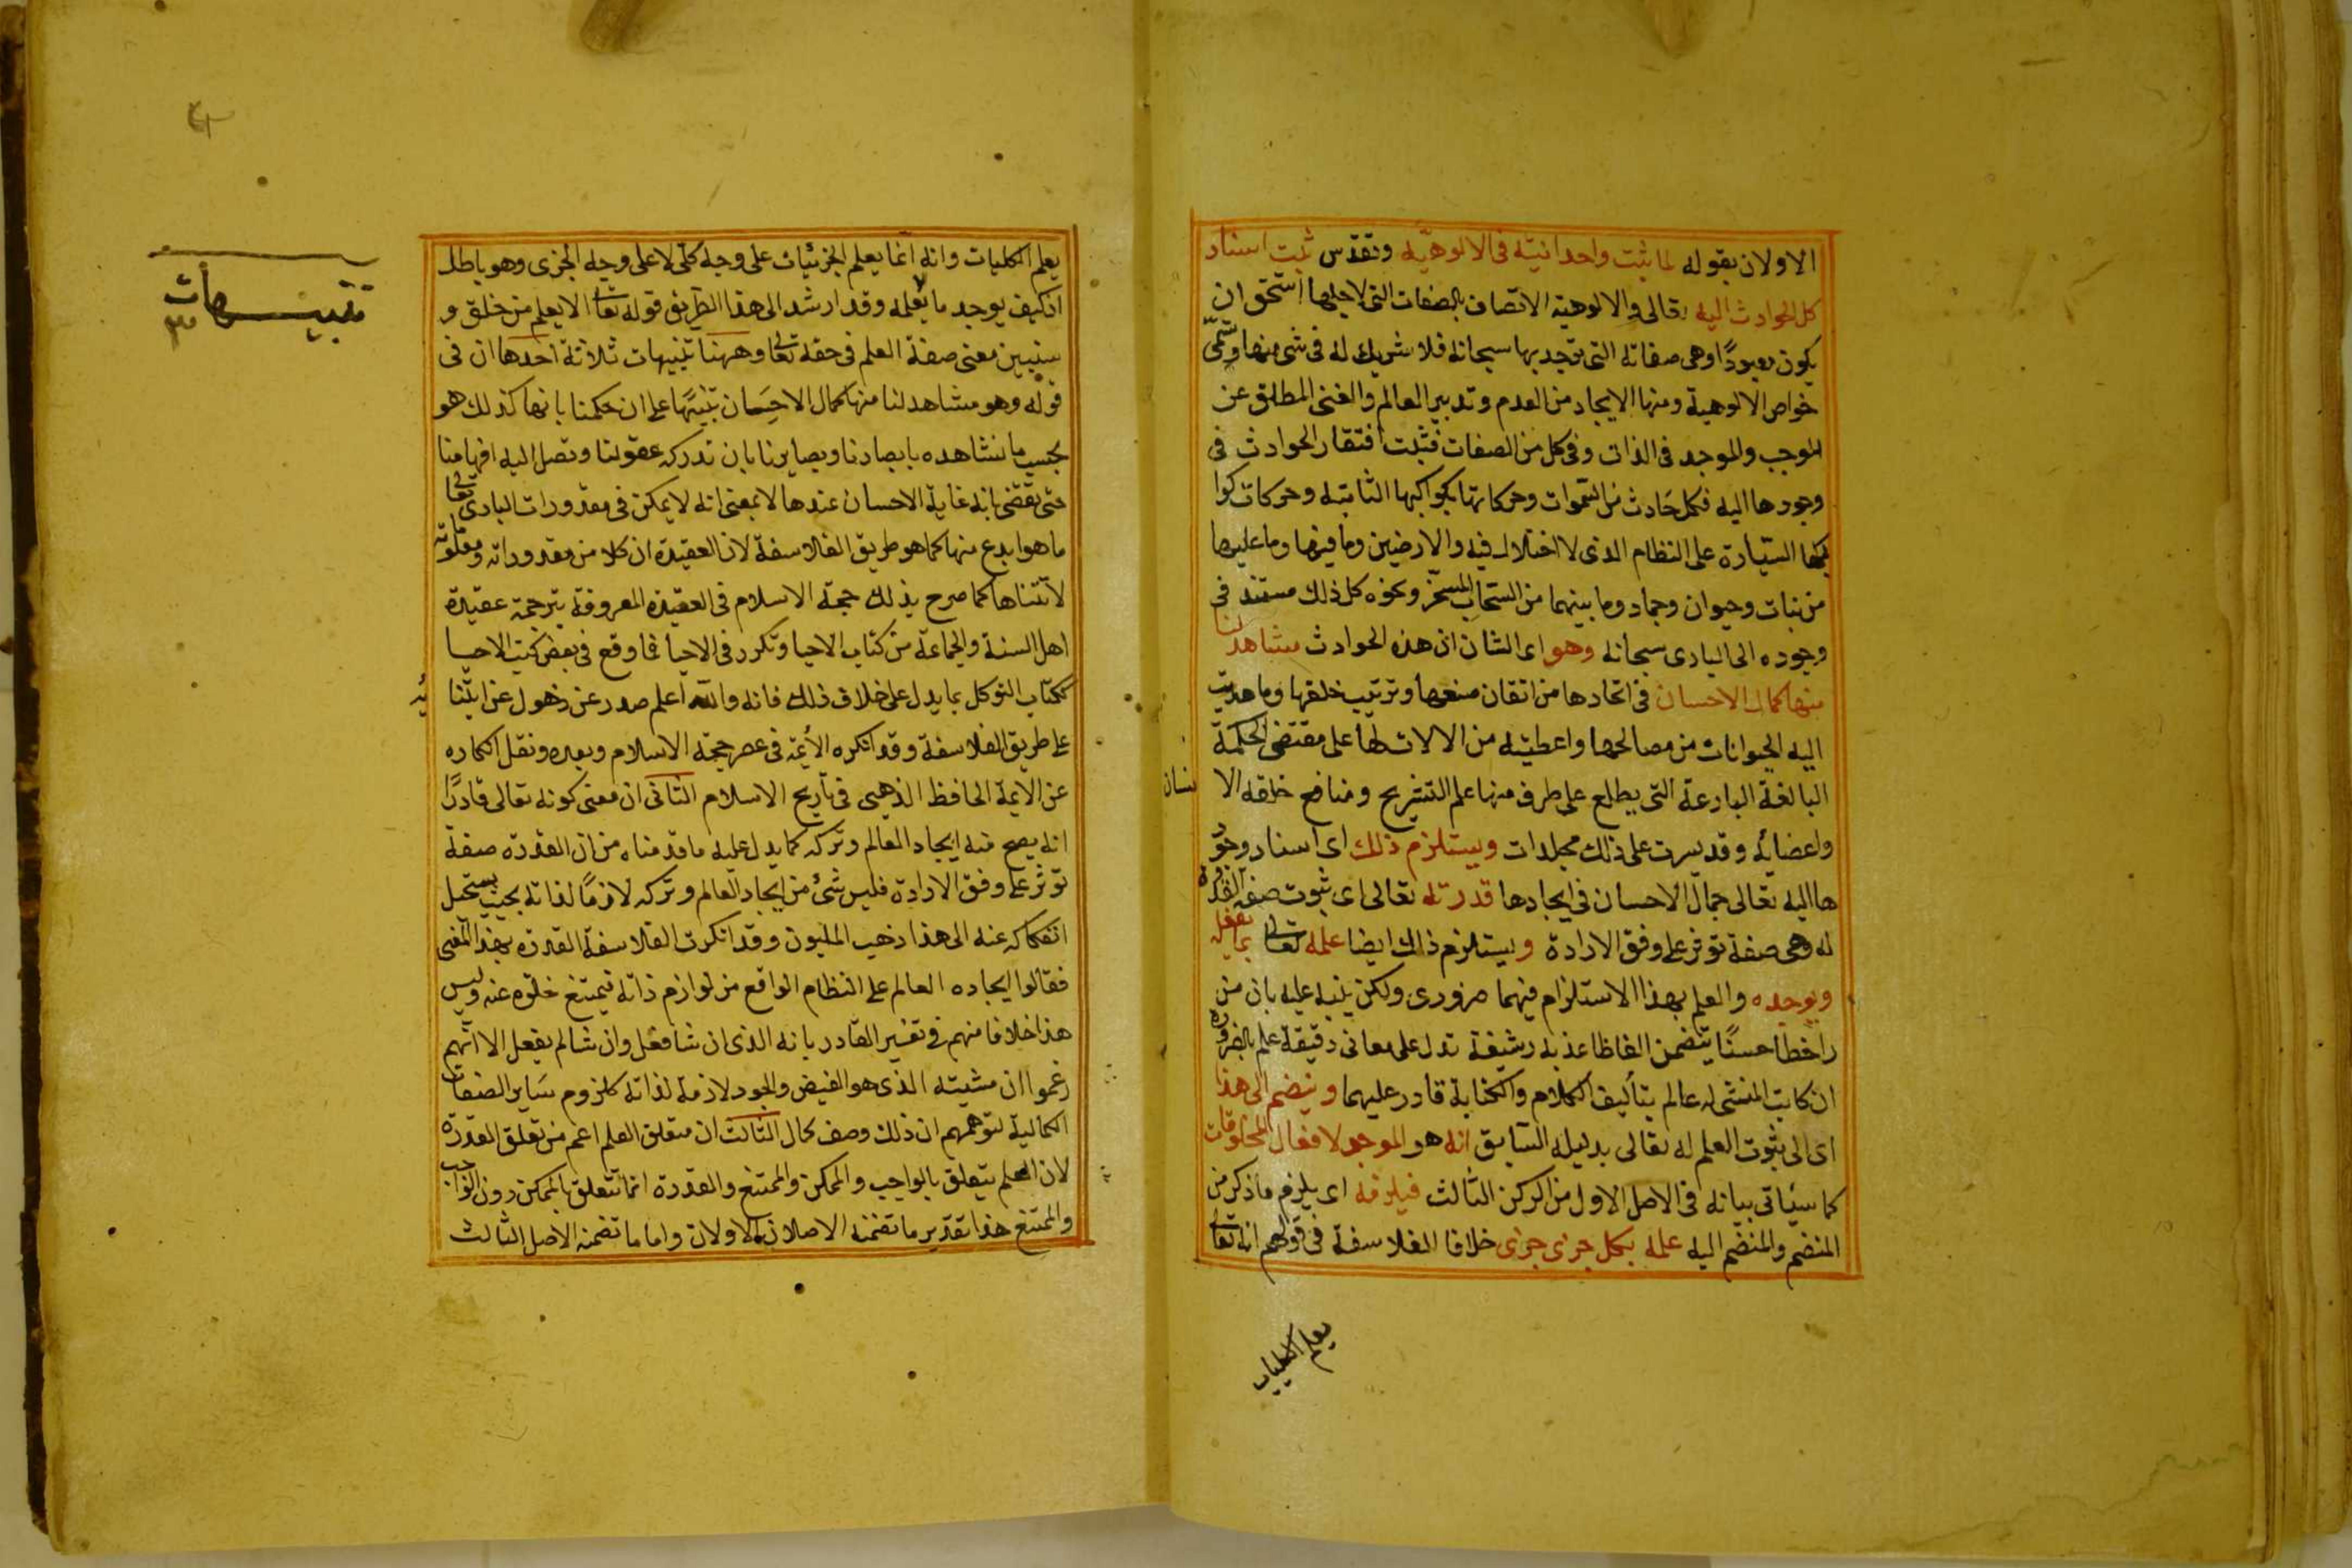 الاولان بقوله لما ثبت واحدانيته فى الالوهيّه وتقدس ثبت استناد
كل الحوادث اليه تعالى والالوهية الاتصاف بالصفات التى لاجلها استحق ان
يكون معبودًا وهى صفاته التى توحد بها سبحانه فلا شريك له فى شى منها وتسمّى
خواص الالوهية ومنها الايجاد من العدم وتدبير العالم والغنى المطلق عن
الموجب والموجد فى الذات وفى كل من الصفات فثبت افتقار الحوادث فى
وجودها اليه فكل حادث من السموات وحركاتها بكواكبها الثابته وحركات كوا
كبها السيّارة على النظام الذى لا اختلال فيه والارضين وما فيها وما عليها
من نبات وحيوان وجماد وما بينهما من السّحاب المسخّر ونحوه كل ذلك مستند فى
وجوده الى البارى سبحانه وهو اى الشان ان هذه الحوادث مشاهد لنا
منها كمال الاحسان فى اتحادها من اتقان صنعها وترتيب خلقها وما هديت
اليه الحيوانات من مصالحها واعطيته من الالات لها على مقتضى الحكمة
البالغة البارعة التى يطلع على طرف منها علم التشريح ومنافع خلقه الا نسان
واعضائه وقد يسرت على ذلك مجلدات ويستلزم ذلك اى اسناد وجو
ها اليه تعالى جمال الاحسان فى ايجادها قدرته تعالى اى ثبوت صفة القدرة
له وهى صفة توثر على وفق الارادة ويستلزم ذلك ايضا علمه تعالى بما يفعله
ويوجده والعلم بهذا الاستلزام فيهما ضرورى ولكن ينبه عليه بان من
راخطا حسنًا يتضمن الفاظا عذبه رشيقة تدل على معانى دقيقة علم بالضرورة
ان كاتبه المنشى له عالم بتأليف الكلام والكتابة قادر عليهما وينضم الى هذا
اى الى ثبوت العلم له تعالى بدليله السّابق انه هو الموجد لافعال المخلوقات
كما سيأتى بيانه فى الاصل الاول من الركن الثالث فيلزمه اى يلزم ما ذكر من
المنضم والمنضم اليه علمه بكل جزى جزى خلافا للفلاسفة فى قولهم انه تعالى
يعلم الكليات
يعلم الكليات وانه انما يعلم الجزئيات على وجه كلّى لا على وجه الجزى وهو باطل
اذ كيف يوجد ما لا يعلمه وقد ارشد الى هذا الطريق قوله تعالى الا يعلم من خلق و
سنبين معنى صفة العلم فى حقه تعالى وههنا تنبيهات ثلاثة احدها ان فى
قوله وهو مشاهد لنا منها كمال الاحسان تنبيهًا على ان حكمنا بانها كذلك هو
بحسب ما نشاهده بابصارنا وبصايرنا بان تدركه عقولنا وتصل اليه افهامنا
حتى تقتضى بانه غاية الاحسان عندها لا بمعنى انه لا يمكن فى مقدورات البارى تعالى
ما هو ابدع منها كما هو طريق الفلاسفة لان العقيدة ان كلا من مقدوراته ومعلوماته
لا تتناها كما صرح بذلك حجة الاسلام فى العقيدة المعروفة بترجمة عقيدة
اهل السنة والجماعة من كتاب الاحيا وتكرر فى الاحيا فما وقع فى بعض كتب الاحيا
ككتاب التوكل مما يدل على خلاف ذلك فانه والله اعلم صدر عن ذهول عن ابتنا ئه
على طريق الفلاسفة وقد انكره الأيمة فى عصر حجة الاسلام وبعده ونقل انكاره
عن الايمة الحافظ الذهبى فى تاريخ الاسلام الثانى ان معنى كونه تعالى قادرًا
انه يصح منه ايجاد العالم وتركه كما يدل عليه ما قدمناه من ان القدرة صفة
توثر على وفق الارادة فليس شئ من ايجاد العالم وتركه لازمًا لذاته بحيث يستحيل
انفكاكه عنه الى هذا ذهب المليون وقد انكرت الفلاسفة القدرة بهذا المعنى
فقالوا ايجاده العالم على النظام الواقع من لوازم ذاته فيمتنع خلوه عنه وليس
هذا خلافا منهم فى تفسير القادر بانه الذى ان شا فعل وان شا لم يفعل الا انهم
زعموا ان مشيته الذى هو الفيض والجود لازمة لذاته كلزوم سَاير الصفات
الكمالية لتوهمهم ان ذلك وصف كمال الثالث ان متعلق العلم اعم من تعلق القدرة
لان العلم يتعلق بالواجب والممكن والممتنع والقدرة انما تتعلق بالممكن دون الواجب
والممتنع هذا تقدير ما تضمنه الاصلان الاولان واما ما تضمنه الاصل الثالث
تنبيهات
٣